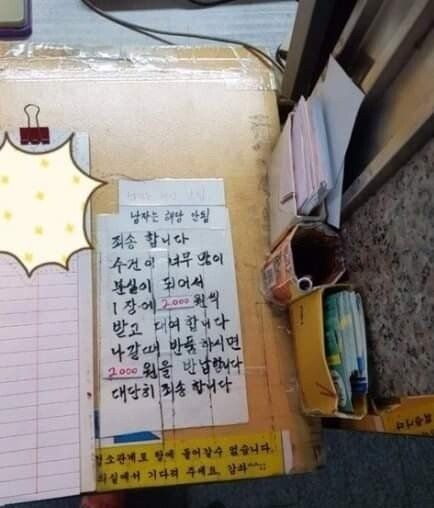 남자는 해당 안됨
죄송 합니다
수건이 너무 많이
분실이 되어서
1장에 2.000원씩
받고 대여 합니다
나갈때 반품 하시면
2000원을 반납합니다
대단히 죄송 합니다
청소관계로 탕에 들어갈수 없습니다.
의실에서 기다려 주세요, 감좌^^;;